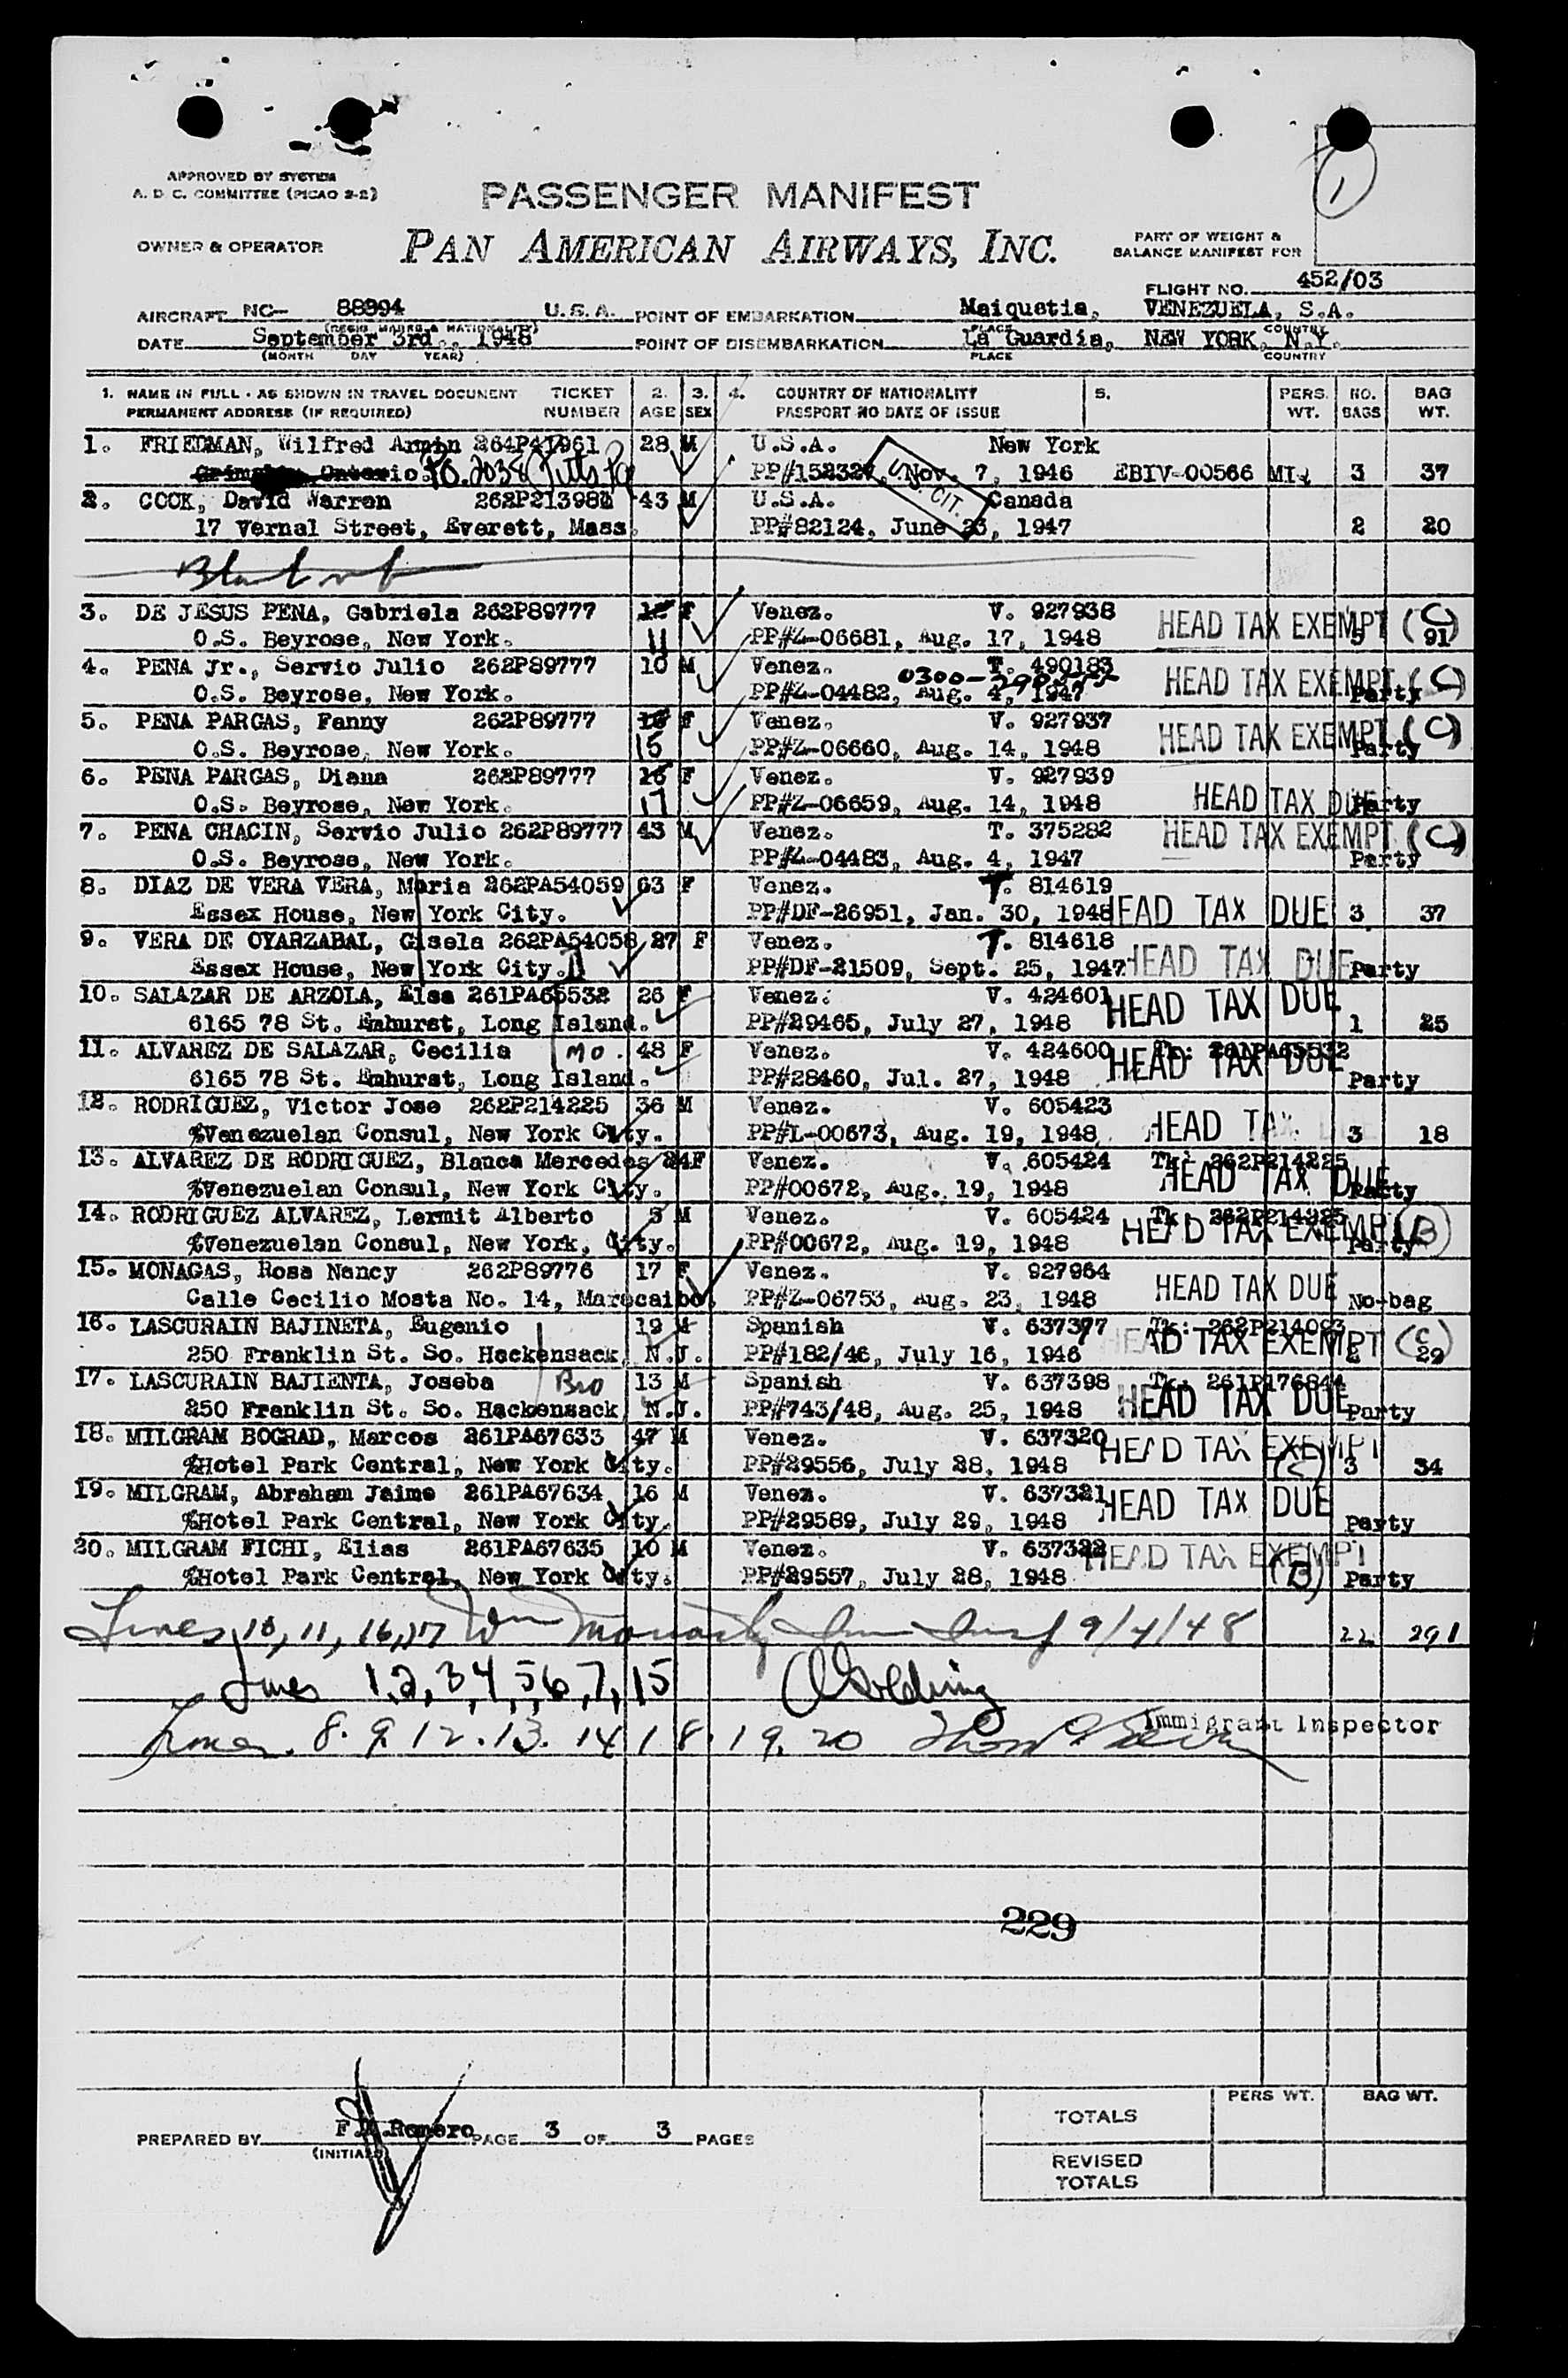 1
APPROVED BY SYSTEM
A. D. C. COMMITTEE (PICAO 2-2)
PASSENGER MANIFEST
OWNER & OPERATOR
PAN AMERICAN AIRWAYS, INC.
PART OF WEIGHT &
BALANCE MANIFEST FOR
FLIGHT NO. 452/03
AIRCRAFT NC- 88994 U.S.A. POINT OF EMBARKATION Maiquetia, VENEZUELA, S.A.
(REGIS MARKS & NATIONALITY) PLACE COUNTRY
DATE September 3rd., 1948 POINT OF DISEMBARKATION La Guardia, NEW YORK, N.Y.
(MONTH DAY YEAR) PLACE COUNTRY
1. NAME IN FULL - AS SHOWN IN TRAVEL DOCUMENT TICKET 2. 3. 4. COUNTRY OF NATIONALITY 5. PERS. NO. BAG
PERMANENT ADDRESS (IF REQUIRED) NUMBER AGE SEX PASSPORT NO DATE OF ISSUE WT. BAGS WT.
1. FRIEDMAN, Wilfred Armin 264P41961 28 M U.S.A. New York
Ontario. PO. 2038 Pitts Pa PP#152327, Nov. 7, 1946 EBIV-00566 MIA 3 37
U.S. CIT.
2. COOK, David Warren 262P213982 43 M U.S.A. Canada
17 Vernal Street, Everett, Mass. PP#82124, June 23, 1947 2 20
3. DE JESUS PENA, Gabriela 262P89777 12 F Venez. V. 927938 HEAD TAX EXEMPT (C)
O.S. Beyrose, New York. 11 PP#Z-06681, Aug. 17, 1948 5 91
4. PENA Jr., Servio Julio 262P89777 10 M Venez. T. 490183 HEAD TAX EXEMPT (C)
O.S. Beyrose, New York. PP#Z-04482, Aug. 4, 1947 Party
5. PENA PARGAS, Fanny 262P89777 F Venez. V. 927937 HEAD TAX EXEMPT (C)
O.S. Beyrose, New York. 15 PP#Z-06660, Aug. 14, 1948 Party
6. PENA PARGAS, Diana 262P89777 16 F Venez. V. 927939
O.S. Beyrose, New York. 17 PP#Z-06659, Aug. 14, 1948 HEAD TAX DUE Party
7. PENA CHACIN, Servio Julio 262P89777 43 M Venez. T. 375282 HEAD TAX EXEMPT (C)
O.S. Beyrose, New York. PP#Z-04483, Aug. 4, 1947 Party
8. DIAZ DE VERA VERA, Maria 262PA54059 63 F Venez. T. 814619
Essex House, New York City. PP#DF-26951, Jan. 30, 1948 HEAD TAX DUE 3 37
9. VERA DE OYARZABAL, Gisela 262PA54058 27 F Venez. T. 814618
Essex House, New York City. D PP#DF-21509, Sept. 25, 1947 HEAD TAX DUE Party
10. SALAZAR DE ARZOLA, Elsa 261PA65532 26 F Venez. V. 424601 HEAD TAX DUE
6165 78 St. Emhurst, Long Island. PP#29465, July 27, 1948 1 25
11. ALVAREZ DE SALAZAR, Cecilia Mo. 48 F Venez. V. 424600 Tk: 261PA65532
6165 78 St. Emhurst, Long Island. PP#28460, Jul. 27, 1948 HEAD TAX DUE Party
12. RODRIGUEZ, Victor Jose 262P214225 36 M Venez. V. 605423
%Venezuelan Consul, New York City. PP#L-00673, Aug. 19, 1948 HEAD TAX 3 18
13. ALVAREZ DE RODRIGUEZ, Blanca Mercedes 24F Venez. V. 605424 Tk: 262P214225
%Venezuelan Consul, New York City. PP#00672, Aug. 19, 1948 HEAD TAX DUE Party
14. RODRIGUEZ ALVAREZ, Lermit Alberto 5 M Venez. V. 605424 Tk: 262P214225
%Venezuelan Consul, New York, City. PP#00672, Aug. 19, 1948 HEAD TAX EXEMPT (B) Party
15. MONAGAS, Rosa Nancy 262P89776 17 F Venez. V. 927964
Calle Cecilio Mosta No. 14, Maracaibo. PP#Z-06753, Aug. 23, 1948 HEAD TAX DUE No-bag
16. LASCURAIN BAJINETA, Eugenio 19 M Spanish V. 637397 Tk: 262P214093
250 Franklin St. So. Hackensack, N.J. PP#182/46, July 16, 1946 HEAD TAX EXEMPT (C) 2 29
17. LASCURAIN BAJIENTA, Joseba Bro 13 M Spanish V. 637398 Tk: 261P176844
250 Franklin St. So. Hackensack N.J. PP#743/48, Aug. 25, 1948 HEAD TAX DUE Party
18. MILGRAM BOGRAD, Marcos 261PA67633 47 M Venez. V. 637320 HEAD TAX EXEMPT
%Hotel Park Central, New York City. PP#29556, July 28, 1948 (C) 3 34
19. MILGRAM, Abraham Jaime 261PA67634 16 M Venez. V. 637321 HEAD TAX DUE
%Hotel Park Central, New York City. PP#29589, July 29, 1948 Party
20. MILGRAM FICHI, Elias 261PA67635 10 M Venez. V. 637322 HEAD TAX EXEMPT
%Hotel Park Central, New York City. PP#29557, July 28, 1948 (B) Party
Lines 10, 11, 16, 17 9/4/48 22 291
Lines 1, 2, 3, 4, 5, 6, 7, 15
Immigrant Inspector
Lines. 8. 9. 12. 13. 14 18. 19. 20
229
PERS WT. BAG WT.
TOTALS
PREPARED BY Romero PAGE 3 OF 3 PAGES
(INITIALS)
REVISED
TOTALS